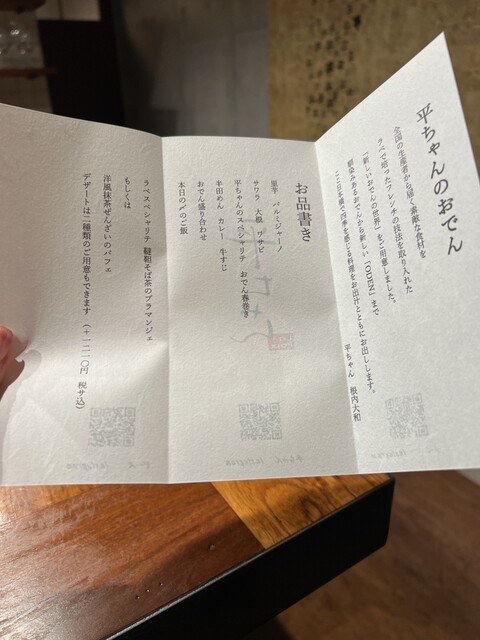 平ちゃんのおでん
全国の生産者から届く素敵な食材を
ラペで培ったフレンチの技法を取り入れた
「新しいおでんの世界」をご用意しました。
馴染みあるおでんから新しい「ODEN」まで
ここ日本橋で四季を感じる料理をお出汁とともにお出しします。
平ちゃん 根内大和
お品書き
里芋 パルミジャーノ
サワラ 大根 ワサビ
平ちゃんのスペシャリテ おでん春巻き
半田めん カレー 牛すじ
おでん盛り合わせ
本日の〆のご飯
ラペスペシャリテ 韃靼そば茶のブラマンジェ
もしくは
洋風抹茶ぜんざいのパフェ
デザートは二種類のご用意もできます (+一二一〇円 税サ込)